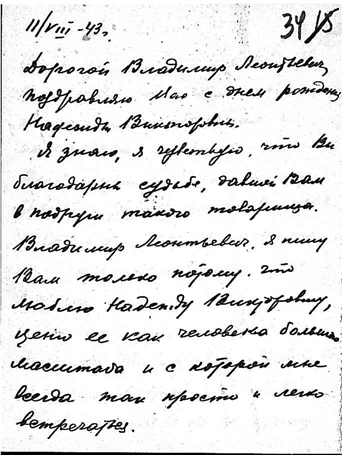 11/VIII -43 г.
34 15
Дорогой Владимир Леонтьевич,
поздравляю Вас с днем рождения
Надежды Викторовны.
Я знаю, я чувствую, что Вы
благодарны судьбе, давшей Вам
в подруги такого товарища.
Владимир Леонтьевич, я пишу
Вам только потому, что
люблю Надежду Викторовну,
ценю ее как человека большого
масштаба и с которой мне
всегда так просто и легко
встречаться.